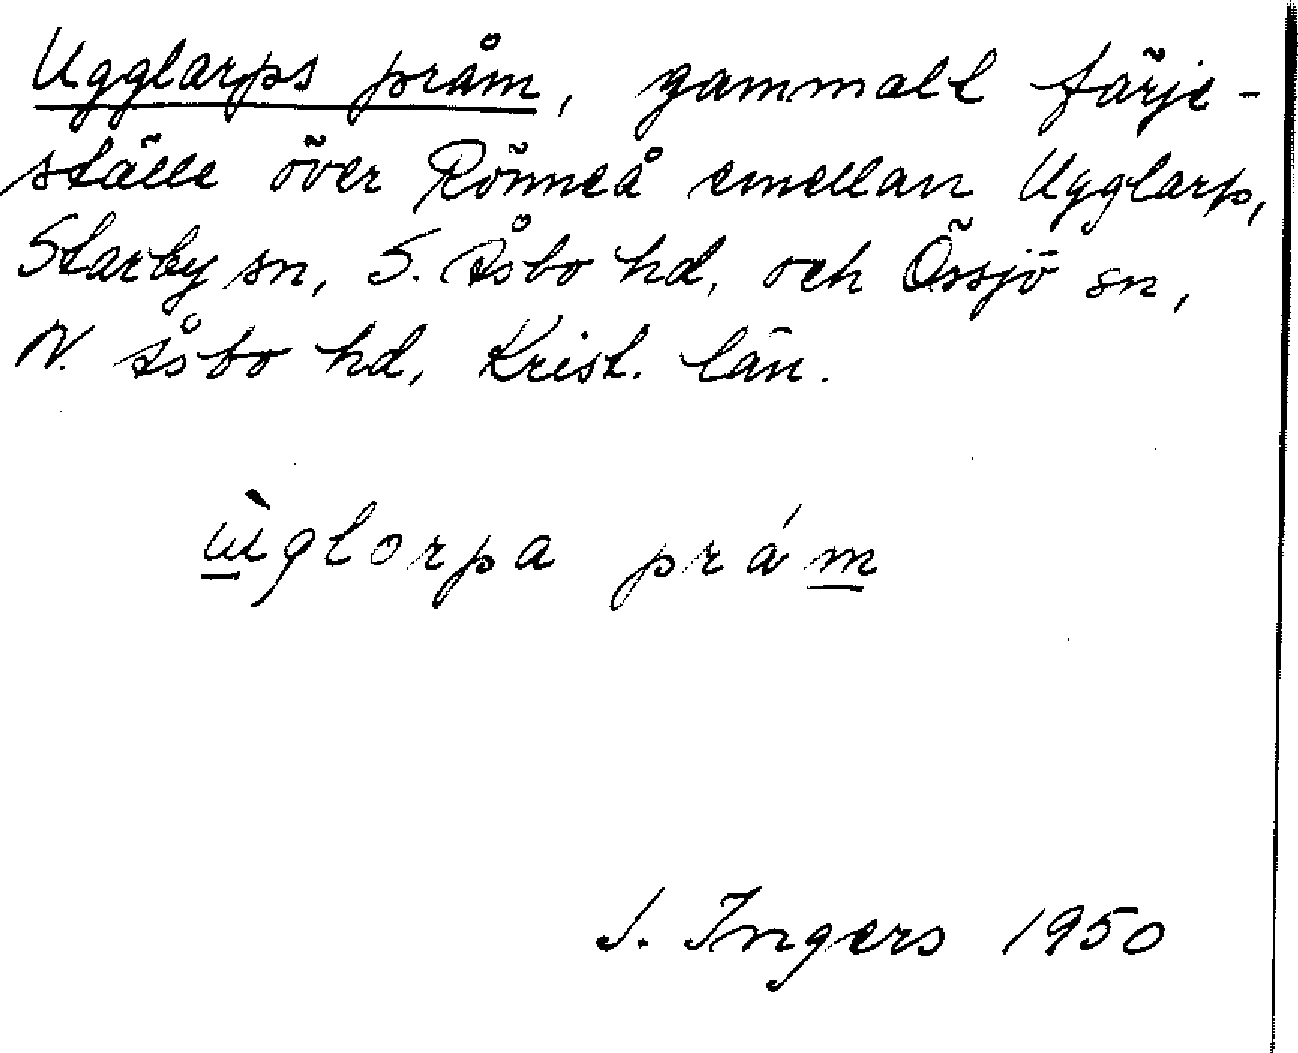 Ugglarps pråm, gammalt färje-
ställe över Rönneå emellan Ugglarp,
Starby sn, S. Åsbo hd, och Össjö sn,
N. Åsbo hd, Krist. län.
ɯ̀glorpa prám
I. Ingers 1950